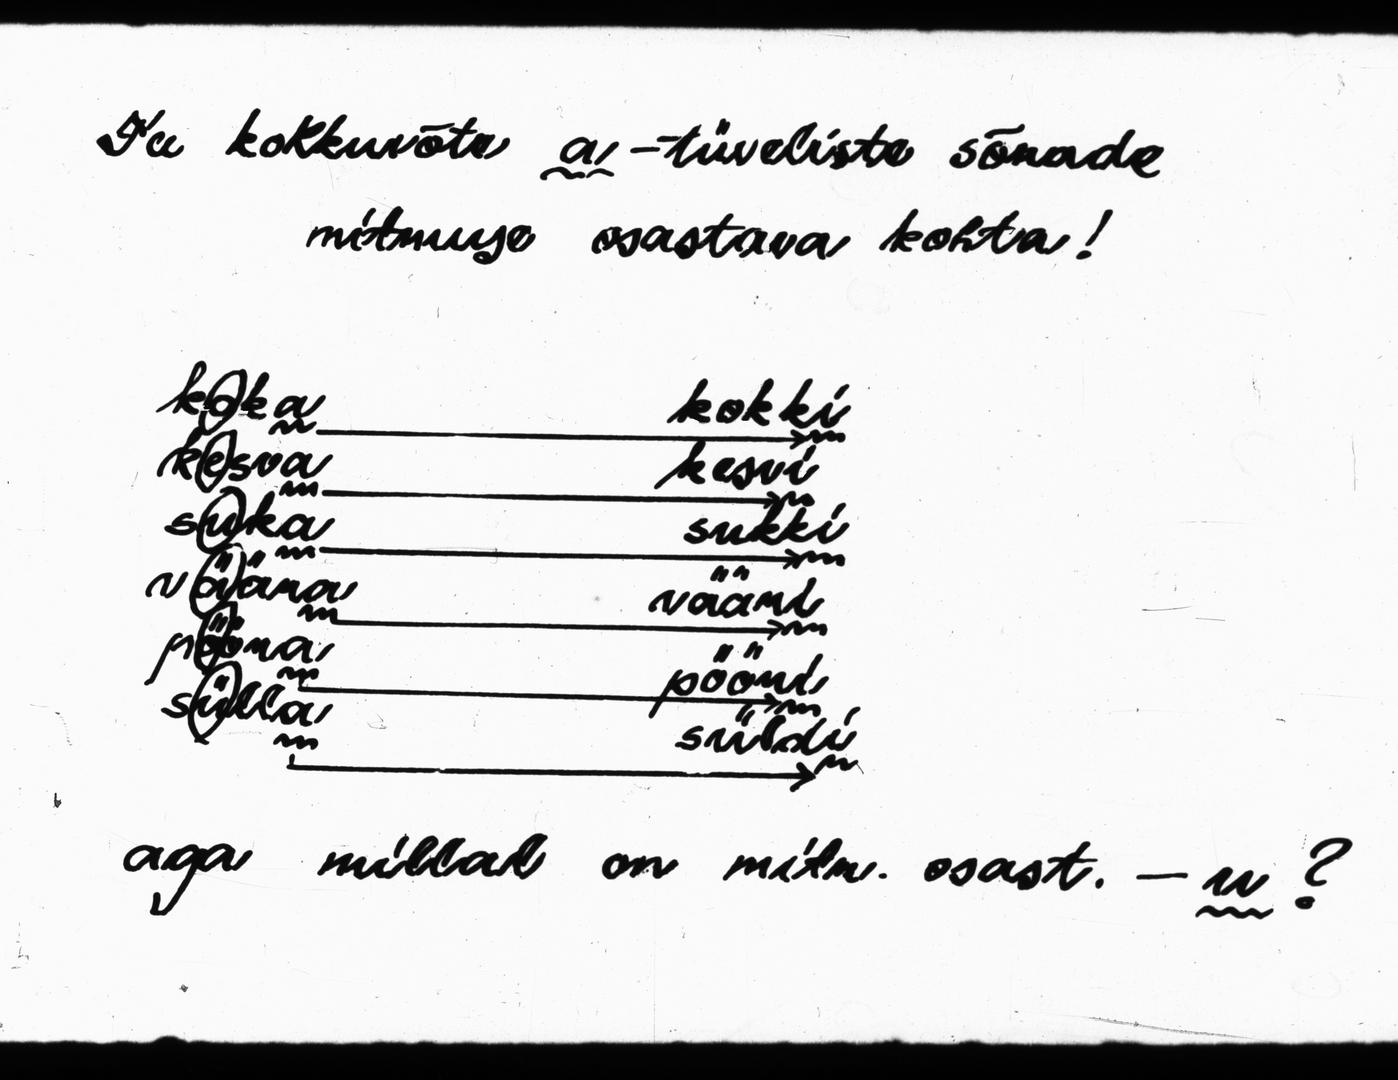 Ja kokkuvõte a-tüveliste sõnade
mitmuse osastava kohta!
koka kokki
kesva kesvi
suka sukki
vääna vääni
pööna pööni
sülla süldi
aga millal on mitm. osast. - u?